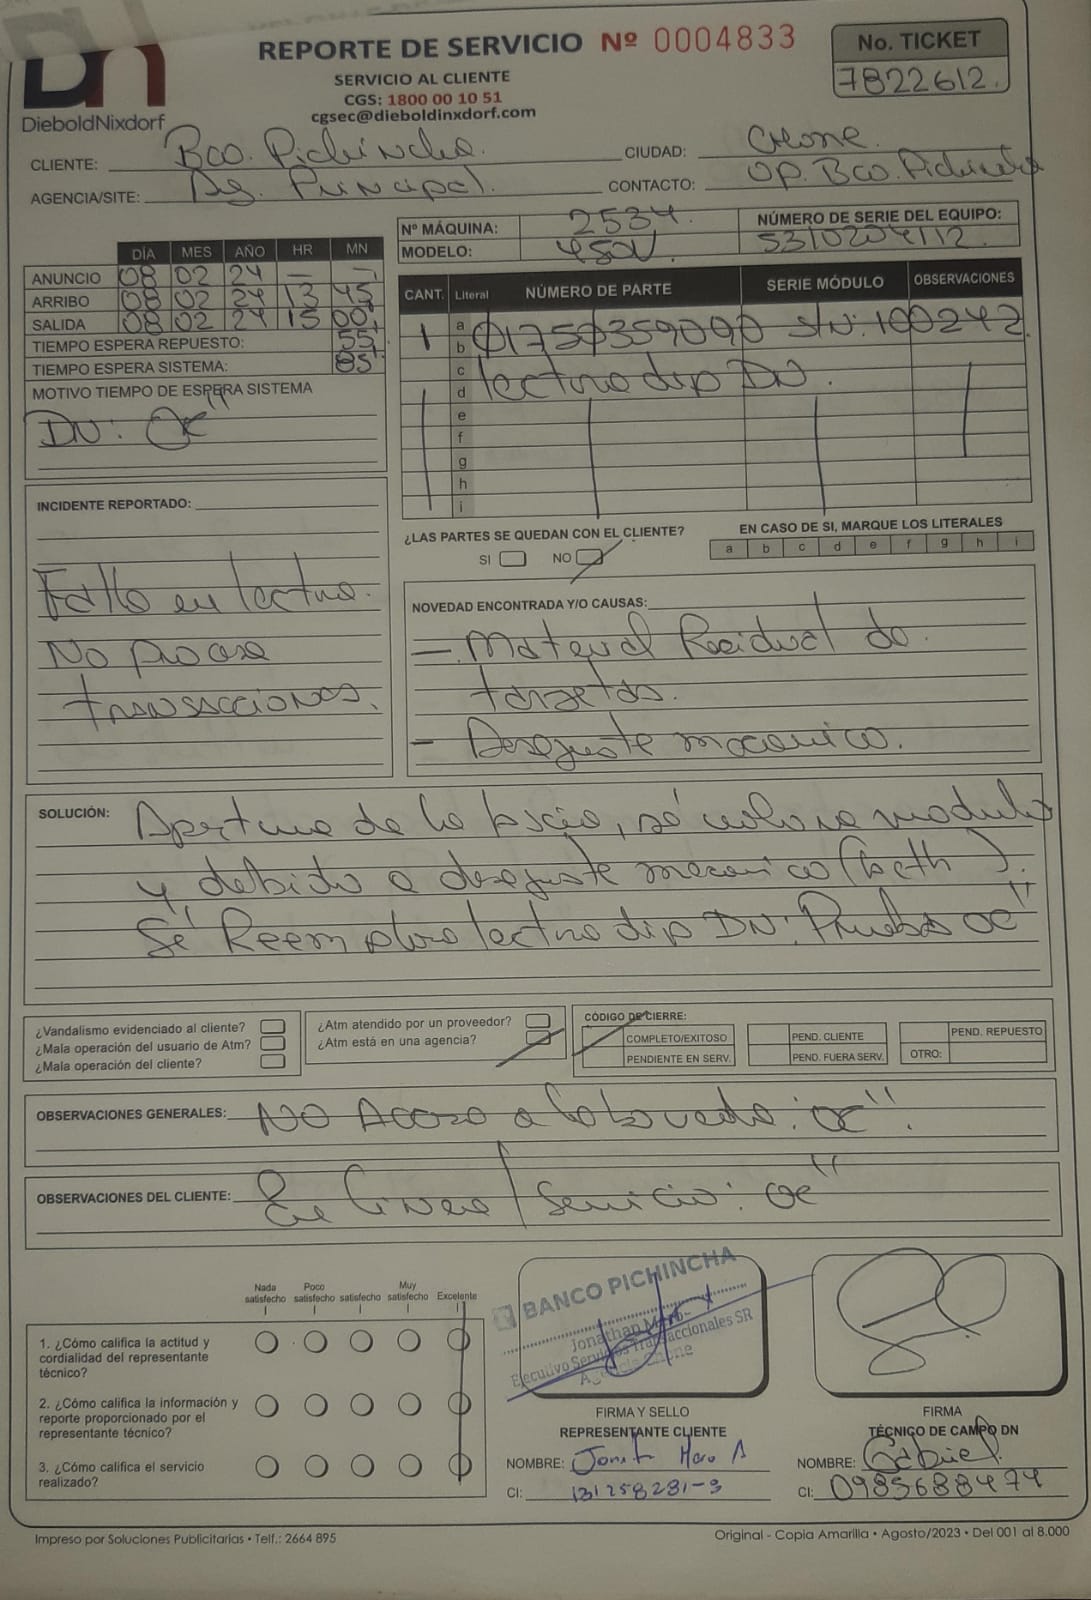 DN
DieboldNixdorf
REPORTE DE SERVICIO Nº 0004833
SERVICIO AL CLIENTE
CGS: 1800 00 10 51
cgsec@dieboldinxdorf.com
No. TICKET
7822612.
CLIENTE: Bco. Pichincha.
CIUDAD: Chone.
AGENCIA/SITE: Ag. Principal.
CONTACTO: Op. Bco. Pichincha
Nº MÁQUINA: 2534.
NÚMERO DE SERIE DEL EQUIPO:
MODELO: 450V
5310204112.
DÍA MES AÑO HR MN
ANUNCIO 08 02 24 — —
ARRIBO 08 02 24 13 45
SALIDA 08 02 24 15 00
TIEMPO ESPERA REPUESTO: 55'
TIEMPO ESPERA SISTEMA: 05'
MOTIVO TIEMPO DE ESPERA SISTEMA
DN:
CANT. Literal NÚMERO DE PARTE SERIE MÓDULO OBSERVACIONES
1 a 01750359090 S/N: 100242
b
c lectora dip DN.
d
e
f
g
h
i
¿LAS PARTES SE QUEDAN CON EL CLIENTE?
SI NO
EN CASO DE SI, MARQUE LOS LITERALES
a b c d e f g h i
INCIDENTE REPORTADO:
Fallo en lectora.
No procesa
transacciones.
NOVEDAD ENCONTRADA Y/O CAUSAS:
— Material Residual de
tarjetas.
— Desajuste mecanico.
SOLUCIÓN: Apertura de la fascia, se modulo
y debido a desajuste mecanico ( ).
Se Reemplaza lectora dip DN. Pruebas OK"
¿Vandalismo evidenciado al cliente?
¿Mala operación del usuario de Atm?
¿Mala operación del cliente?
¿Atm atendido por un proveedor?
¿Atm está en una agencia?
CÓDIGO DE CIERRE:
COMPLETO/EXITOSO
PENDIENTE EN SERV.
PEND. CLIENTE
PEND. FUERA SERV.
PEND. REPUESTO
OTRO:
OBSERVACIONES GENERALES: NO Acceso a la boveda. OK".
OBSERVACIONES DEL CLIENTE: En linea / Servicio: OK"
Nada satisfecho
Poco satisfecho
satisfecho
Muy satisfecho
Excelente
1. ¿Cómo califica la actitud y
cordialidad del representante
técnico?
2. ¿Cómo califica la información y
reporte proporcionado por el
representante técnico?
3. ¿Cómo califica el servicio
realizado?
BANCO PICHINCHA
Jonathan
Ejecutivo Servicios Transaccionales SR
Agencia Chone
FIRMA Y SELLO
REPRESENTANTE CLIENTE
NOMBRE:
CI: 131258281-3
FIRMA
TÉCNICO DE CAMPO DN
NOMBRE: Gabriel.
CI: 0985688474
Impreso por Soluciones Publicitarias • Telf.: 2664 895
Original - Copia Amarilla • Agosto/2023 • Del 001 al 8.000